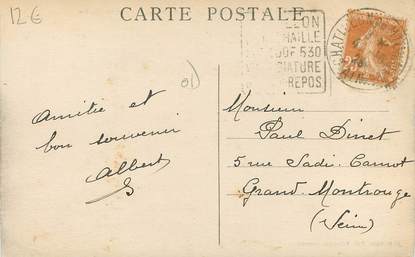 12€
CARTE POSTALE
LEON
HAILLE
530
IATURE
REPOS
CHATEL
Amitié et
bon souvenir
Albert
Monsieur
Paul Dinet
5 rue Sadi-Carnot
Grand-Montrouge
(Seine)